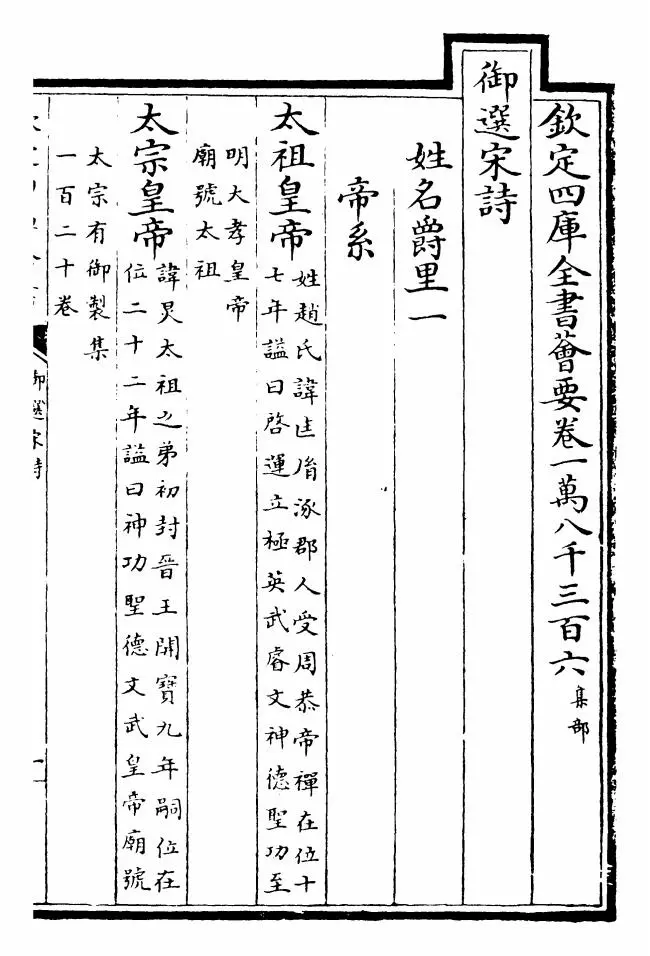 欽定四庫全書薈要卷一萬八千三百六集部
御選宋詩
姓名爵里一
帝系
太祖皇帝
姓趙氏諱匡胤涿郡人受周恭帝禪在位十
七年諡曰啓運立極英武睿文神德聖功至
明大孝皇帝
廟號太祖
太宗皇帝
諱炅太祖之弟初封晉王開寶九年嗣位在
位二十二年諡曰神功聖德文武皇帝廟號
太宗有御製集
一百二十卷
御選宋詩